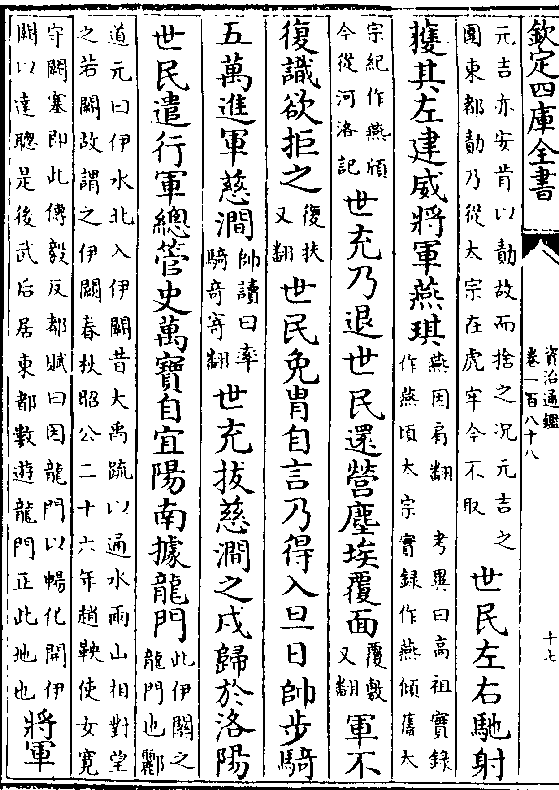 欽定四庫全書
資治通鑑
卷一百八十八
十七
元吉亦安肯以勣故而捨之况元吉之
圍東都勣乃從太宗在虎牢今不取
世民左右馳射
獲其左建威將軍燕琪
燕因肩翻 考異曰高祖實錄
作燕頃太宗實録作燕傾舊太
宗紀作燕頎
今從河洛記
世充乃退世民還營塵埃覆面
覆敷
又翻
軍不
復識欲拒之
復扶
又翻
世民免冑自言乃得入旦日帥步騎
五萬進軍慈澗
帥讀曰率
騎奇寄翻
世充拔慈澗之戍歸於洛陽
世民遣行軍總管史萬寶自宜陽南據龍門
此伊闕之
龍門也酈
道元曰伊水北入伊闕昔大禹疏以通水兩山相對望
之若闕故謂之伊闕春秋昭公二十六年趙鞅使女寛
守闕塞即此傅毅反都賦曰因龍門以暢化開伊
闕以達聰是後武后居東都數遊龍門正此地也
將軍